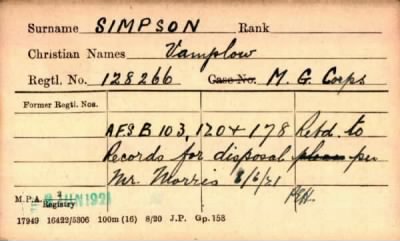 Surname SIMPSON Rank
Christian Names Vamplow
Regtl. No. 128266 Case No. M. G. Corps
Former Regtl. Nos.
AFSB 103, 120 & 178 Retd. to
Records for disposal please per
Mr. Morris 8/6/21
M.P.A. 2 Registry JUN 1921
17949 16422/5306 100m (16) 8/20 J.P. Gp. 158